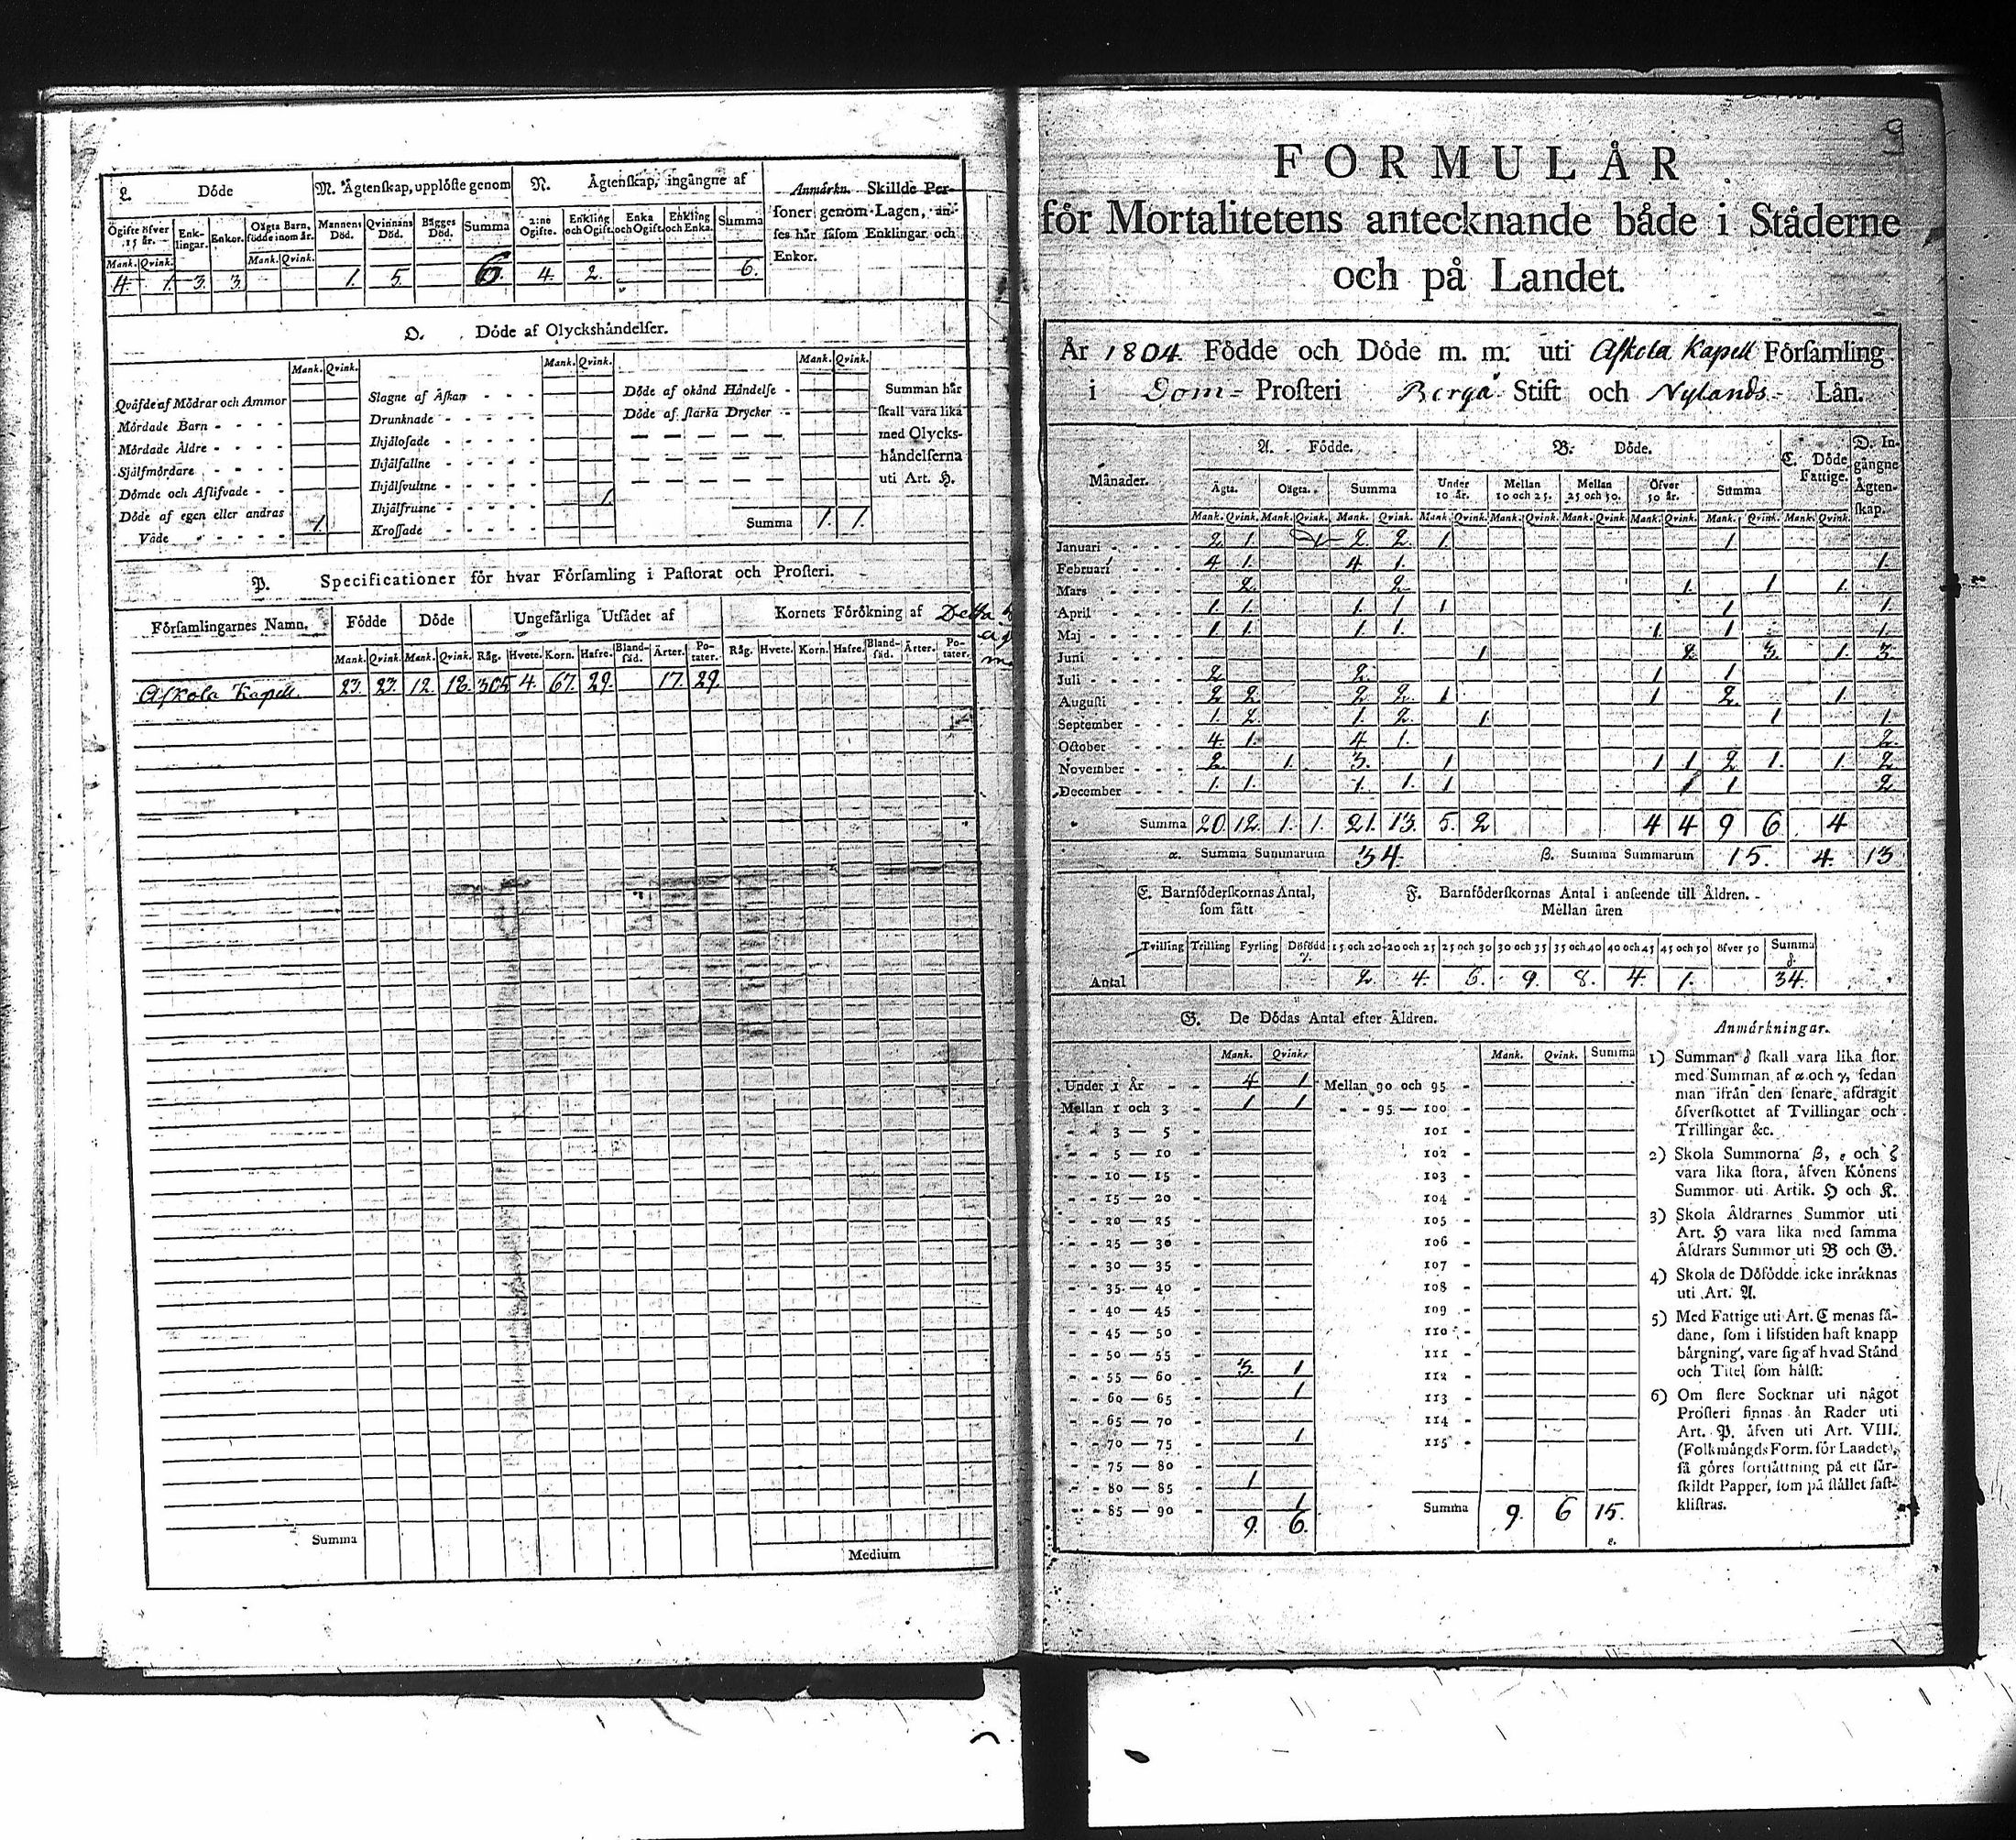 L. Döde
M. Ägtenskap, upplöste genom
N. Ägtenskap, ingångne af
Anmärkn. Skillde Per-
soner genom Lagen, an-
ses här såsom Enklingar och
Enkor.
Ogifte öfver 15 år. Enk-lingar. Enkor. Oägta Barn, födde inom år. Mannens Död. Qvinnans Död. Bägges Död. Summa 2:ne Ogifte. Enkling och Ogift. Enka och Ogift. Enkling och Enka. Summa
Mank. Qvink. Mank. Qvink.
4. 1. 3. 3. 1. 5. 6. 4. 2. 6.
O. Döde af Olyckshändelser.
Mank. Qvink. Mank. Qvink. Mank. Qvink.
Qväfde af Mödrar och Ammor
Mördade Barn - - - -
Mördade Äldre - - - -
Sjålfmördare - - - -
Dömde och Aflifvade - -
Döde af egen eller andras
Våde - - - - - 1.
Slagne af Åskan - - -
Drunknade - - - - -
Ihjälosade - - - - -
Ihjälfallne - - - - -
Ihjälsvultne - - - - -
Ihjälfrusne - - - - - 1.
Krossade - - - - -
Döde af okänd Händelse -
Döde af starka Drycker -
Summa 1. 1.
Summan här
skall vara lika
med Olycks-
händelserna
uti Art. H.
P. Specificationer för hvar Församling i Pastorat och Prosteri.
Församlingarnes Namn. Födde Döde Ungefärliga Utsädet af Kornets Förökning af
Mank. Qvink. Mank. Qvink. Råg. Hvete. Korn. Hafre. Bland-säd. Ärter. Po-tater. Råg. Hvete. Korn. Hafre. Bland-säd. Ärter. Po-tater.
Askola Kapell 23. 23. 12. 305 4. 67. 29. 17. 29.
Summa
Medium
9
FORMULÄR
för Mortalitetens antecknande både i Städerne
och på Landet.
År 1804. Födde och Döde m. m. uti Askola Kapell Församling
i Dom- Prosteri Borgå Stift och Nylands- Län.
Månader. A. Födde. B. Döde. C. Döde Fattige. D. In-gångne Ägten-skap.
Ägta. Oägta. Summa Under 10 år. Mellan 10 och 25. Mellan 25 och 50. Öfver 50 år. Summa
Mank. Qvink. Mank. Qvink. Mank. Qvink. Mank. Qvink. Mank. Qvink. Mank. Qvink. Mank. Qvink. Mank. Qvink. Mank. Qvink.
Januari - - - - 2. 1. 1 2. 2. 1. 1
Februari - - - 4. 1. 4 1. 1.
Mars - - - - 2. 2. 1. 1 1.
April - - - - 1. 1. 1. 1 1 1 1.
Maj - - - - 1. 1. 1. 1. 1. 1 1.
Juni - - - - 1 2. 3. 1. 3.
Juli - - - - 2 2. 1 1
Augusti - - - 2 2. 2 2 1 1 2. 1.
September - - - 1. 2. 1. 2. 1. 1 1.
October - - - 4. 1. 4 1. 2.
November - - - 2. 1. 3. 1 1 1 2 1. 1. 2
December - - - 1. 1. 1. 1. 1 1 1 2
Summa 20. 12. 1. 1. 21. 13. 5. 2 4 4 9 6. 4
α. Summa Summarum 34. β. Summa Summarum 15. 4. 13
E. Barnföderskornas Antal, som fått
F. Barnföderskornas Antal i anseende till Åldren.
Mellan åren
Tvilling Trilling Fyrling Dödfödd γ. 15 och 20 20 och 25 25 och 30 30 och 35 35 och 40 40 och 45 45 och 50 öfver 50 Summa δ.
Antal 2. 4. 6. 9. 8. 4. 1. 34.
G. De Dödas Antal efter Åldren.
Mank. Qvink. Mank. Qvink. Summa
Under 1 År - - 4 1 Mellan 90 och 95 -
Mellan 1 och 3 - 1 1 - - 95 — 100 -
- - 3 — 5 - 101 -
- - 5 — 10 - 102 -
- - 10 — 15 - 103 -
- - 15 — 20 - 104 -
- - 20 — 25 - 105 -
- - 25 — 30 - 106 -
- - 30 — 35 - 107 -
- - 35 — 40 - 108 -
- - 40 — 45 - 109 -
- - 45 — 50 - 110 -
- - 50 — 55 - 111 -
- - 55 — 60 - 3. 1 112 -
- - 60 — 65 - 1 113 -
- - 65 — 70 - 114 -
- - 70 — 75 - 1 115 -
- - 75 — 80 -
- - 80 — 85 - 1
- - 85 — 90 - 1 Summa 9. 6 15.
9. 6. ε.
Anmärkningar.
1) Summan δ skall vara lika stor
med Summan af α och γ, sedan
man ifrån den senare afdragit
öfverskottet af Tvillingar och
Trillingar &c.
2) Skola Summorna β, ε och ζ
vara lika stora, äfven Könens
Summor uti Artik. H och K.
3) Skola Åldrarnes Summor uti
Art. H vara lika med samma
Åldrars Summor uti B och G.
4) Skola de Döfödde icke inräknas
uti Art. A.
5) Med Fattige uti Art. C menas så-
dane, som i lifstiden haft knapp
bärgning, vare sig af hvad Stånd
och Titel som hälst.
6) Om flere Socknar uti något
Prosteri finnas än Rader uti
Art. P. äfven uti Art. VIII.
(Folkmängds Form. för Landet),
så göres fortsättning på ett sär-
skildt Papper, som på stället fast-
klistras.